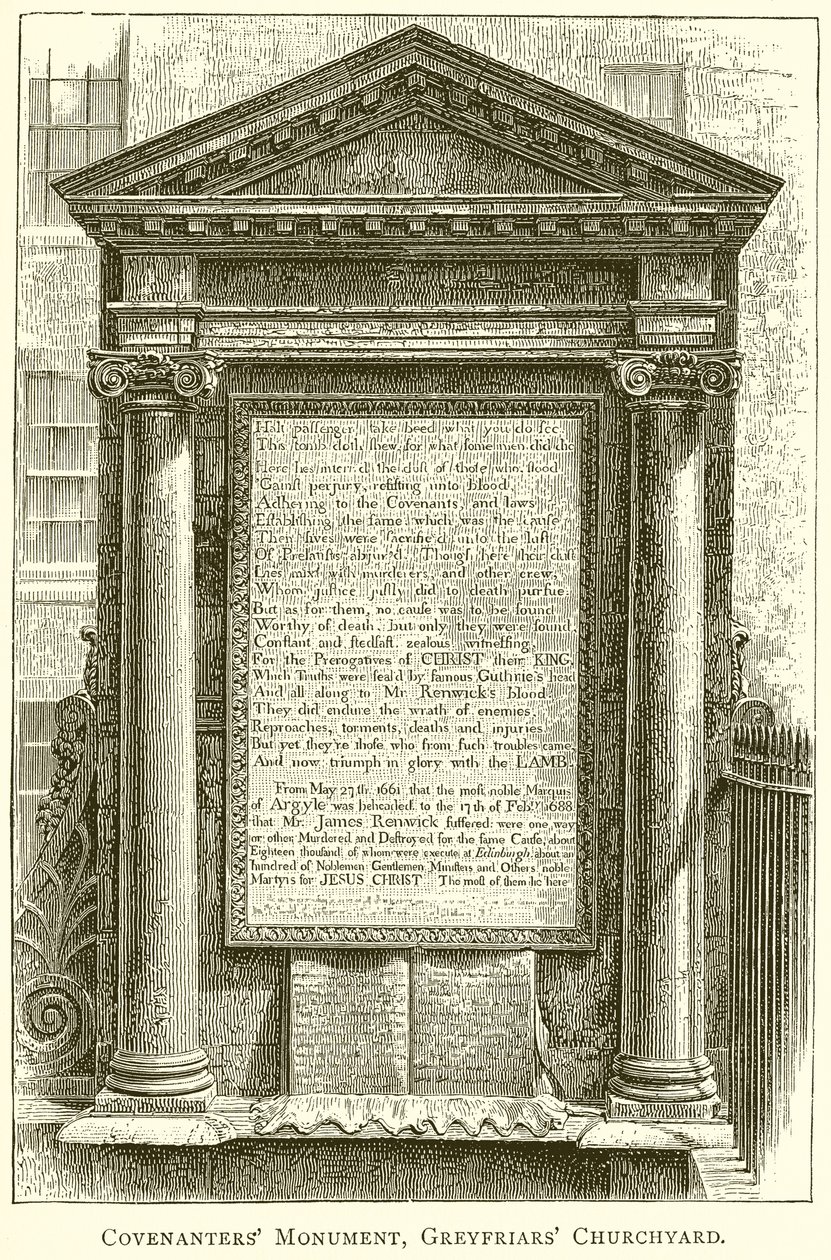 Halt passenger, take heed what you do see
This tomb doth shew, for what some men did die
Here lies interr'd the dust of those who stood
'Gainst perjury, resisting unto blood
Adhering to the Covenants, and laws
Establishing the same which was the cause
Their lives were sacrific'd unto the lust
Of Prelatists abjur'd. Though here their dust
Lies mixt with murderers, and other crew,
Whom justice justly did to death pursue
But as for them, no cause was to be found
Worthy of death, but only they were found
Constant and stedfast. zealous witnessing,
For the Prerogatives of CHRIST their KING.
Which Truths were seal'd by famous Guthrie's head
And all along to Mr. Renwick's blood.
They did endure the wrath of enemies.
Reproaches, torments, deaths and injuries.
But yet they're those who from such troubles came,
And now triumph in glory with the LAMB.
From May 27th. 1661 that the most noble Marquis
of Argyle was beheaded. to the 17th of Febry. 1688.
that Mr. James Renwick suffered. were one way
or other Murdered and Destroyed for the same Cause, about
Eighteen thousand. of whom were execute at Edinburgh, about an
hundred of Noblemen Gentlemen Ministers and Others noble
Martyrs for JESUS CHRIST. The most of them lie here
COVENANTERS' MONUMENT, GREYFRIARS' CHURCHYARD.